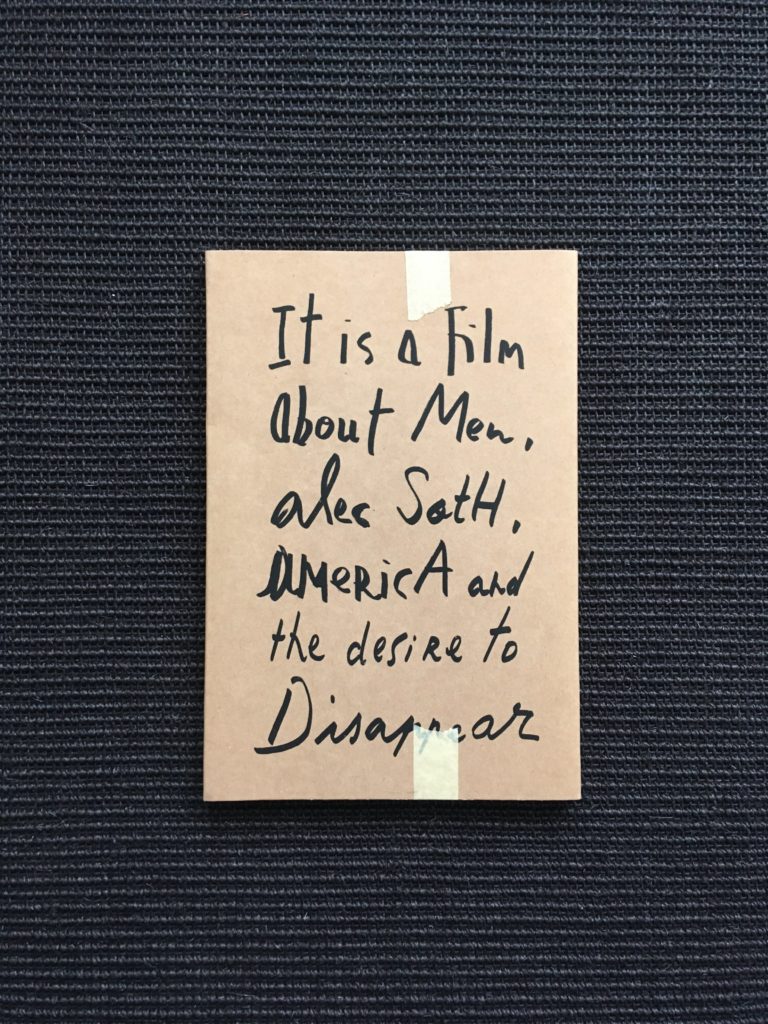 It is a Film
about Men,
alec SotH,
AMericA and
the desire to
Disappear